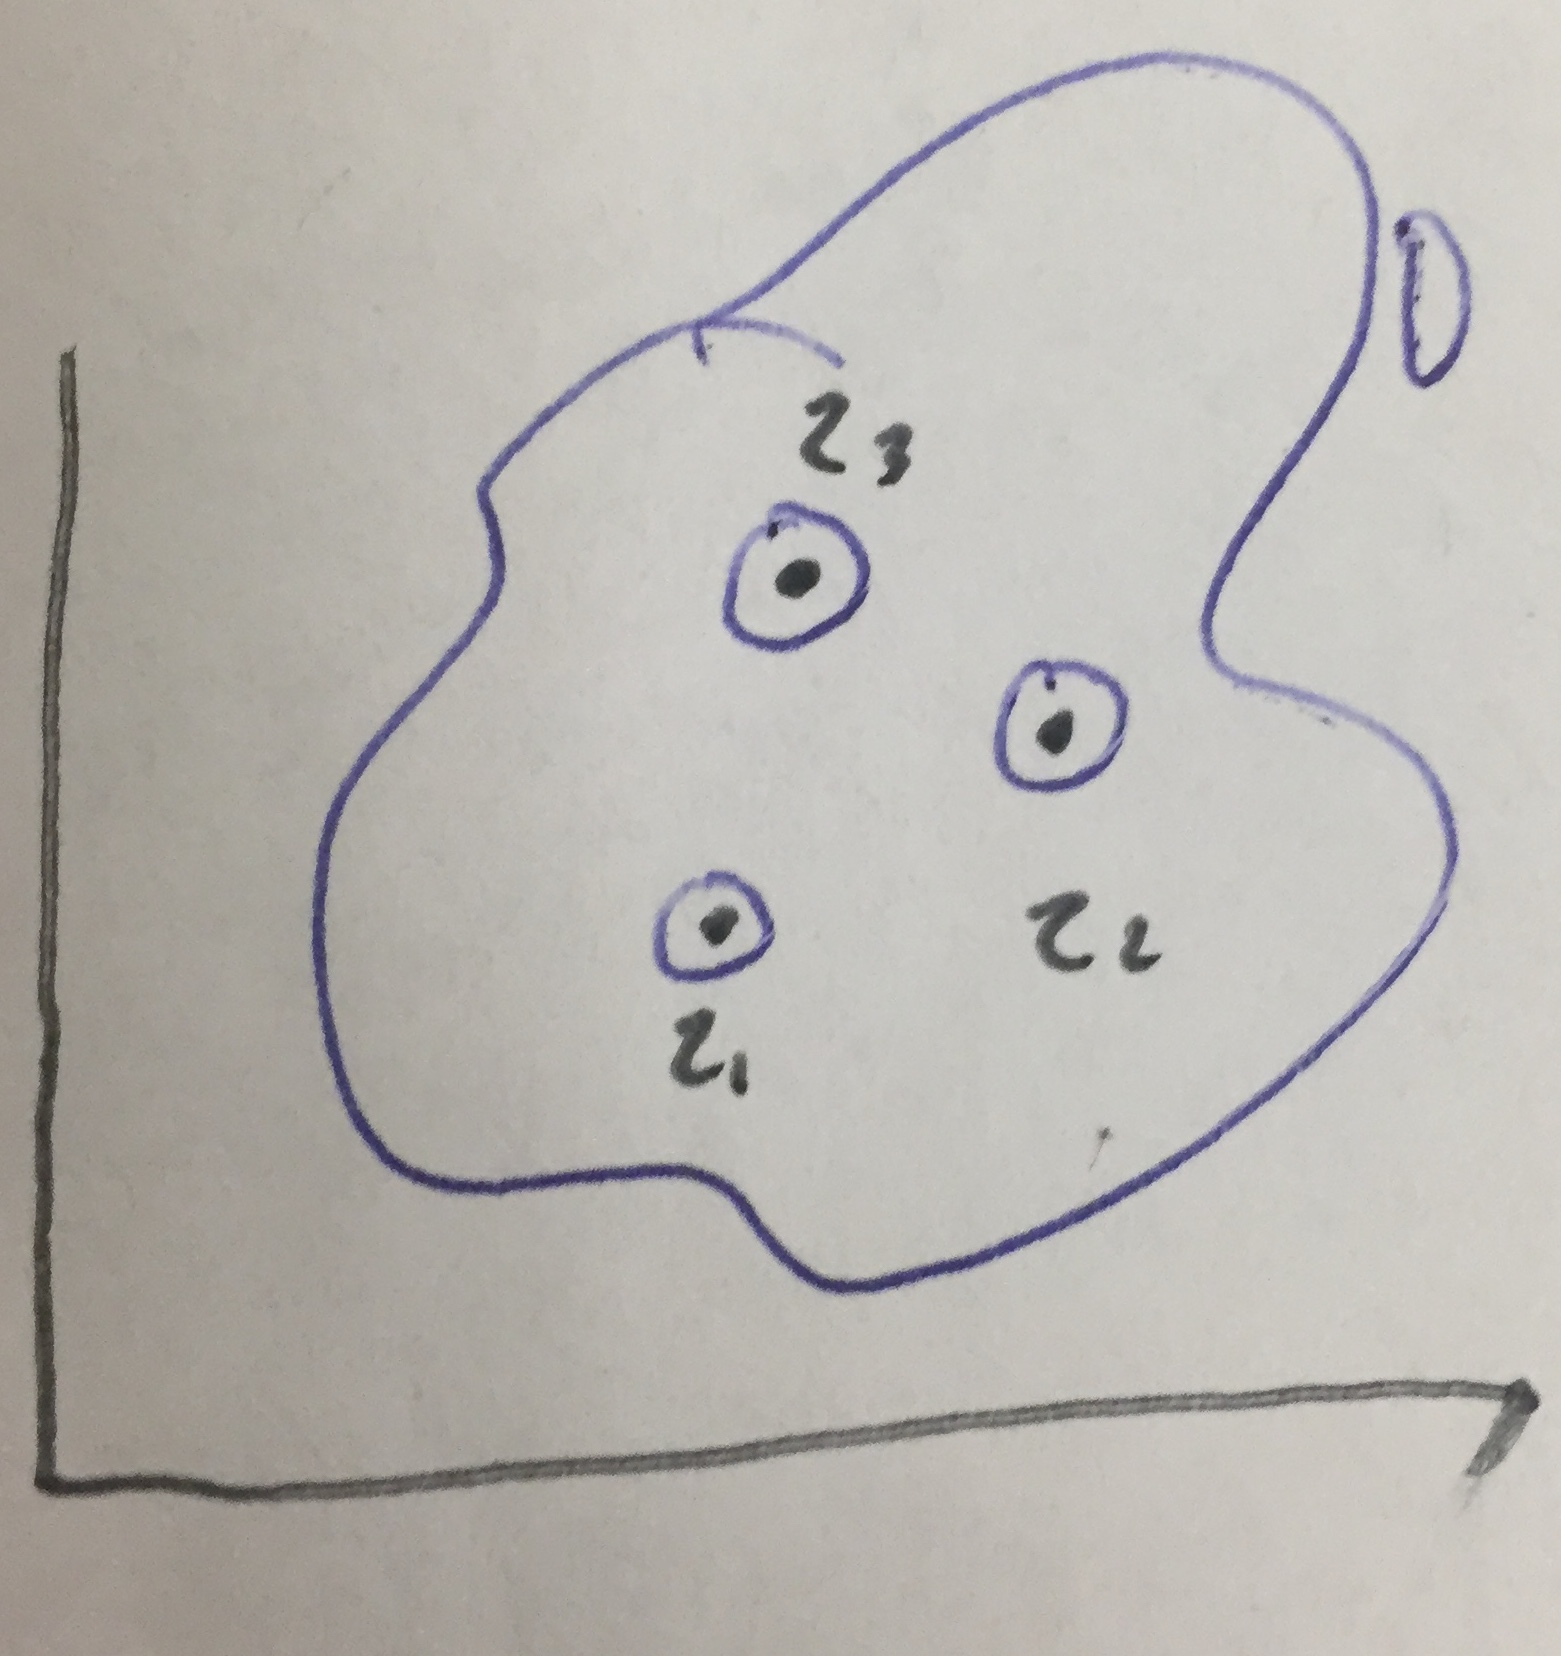 D
z3
z2
z1